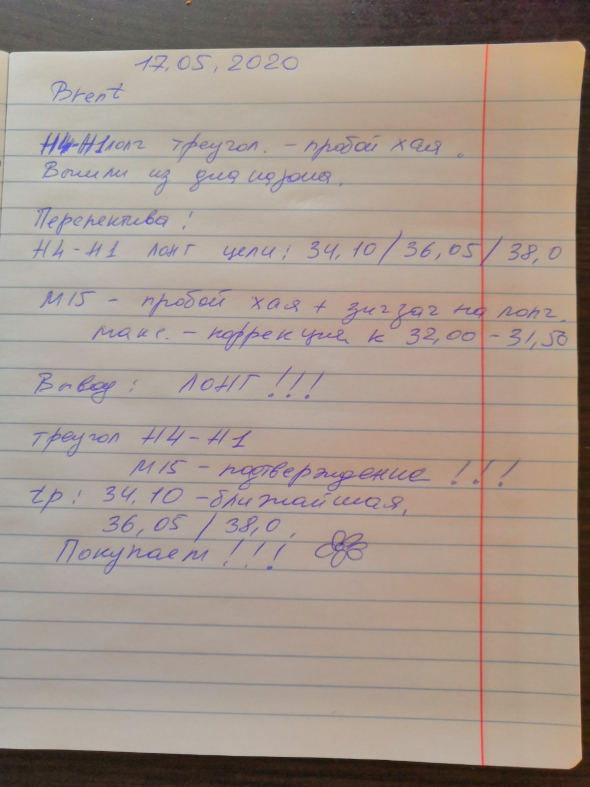 17.05.2020
Brent
H4-H1 лонг треугол. - пробой хая.
Вышли из диапазона.
Перспектива:
H4-H1 лонг цели: 34,10/36,05/38,0
M15 - пробой хая + зигзаг на лонг.
макс. - коррекция к 32,00-31,50
Вывод: ЛОНГ!!!
треугол H4-H1
M15 - подтверждение!!!
tp: 34.10 - ближайшая,
36,05/38,0.
Покупаем!!!